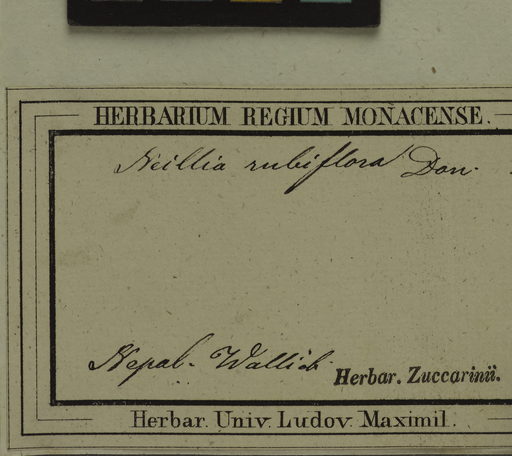 HERBARIUM REGIUM MONACENSE.
Neillia rubiflora Don.
Nepal. Wallich
Herbar. Zuccarinii.
Herbar. Univ. Ludov. Maximil.